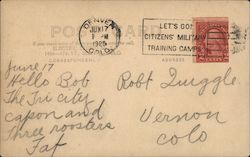 POST CARD
DENVER
JUN 17
PM
1925
COLO.
LET'S GO!
CITIZENS' MILITARY
TRAINING CAMPS
CORRESPONDENCE
ADDRESS
June 17
Hello Bob
The Tri city
capon and
three roosters
Faf
Robt Quiggle
Vernon
Colo